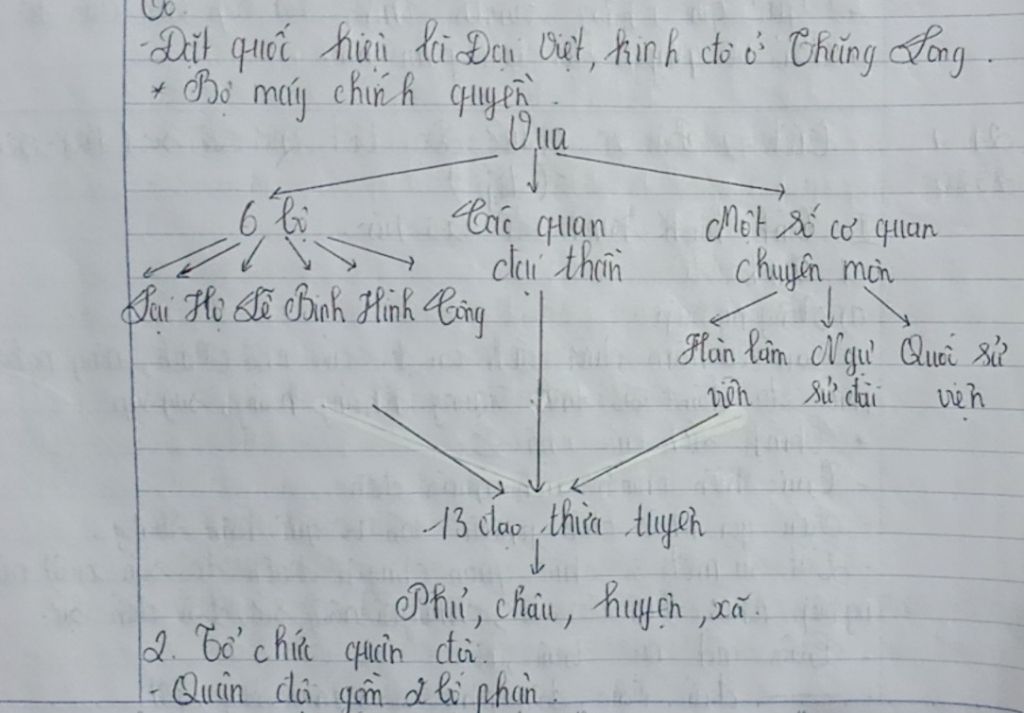 - Đặt quốc hiệu là Đại Việt, kinh đô ở Thăng Long.
* Bộ máy chính quyền.
Vua
6 bộ
Các quan
đại thần
Một số cơ quan
chuyên môn
Lại Hộ Lễ Binh Hình Công
Hàn lâm
viện
Ngự
sử đài
Quốc sử
viện
13 đạo thừa tuyên
Phủ, châu, huyện, xã
2. Tổ chức quân đội.
- Quân đội gồm 2 bộ phận.